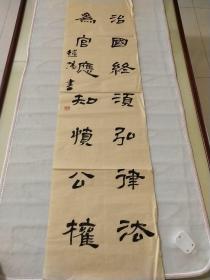 治國終須弘律法
為官應知慎公權